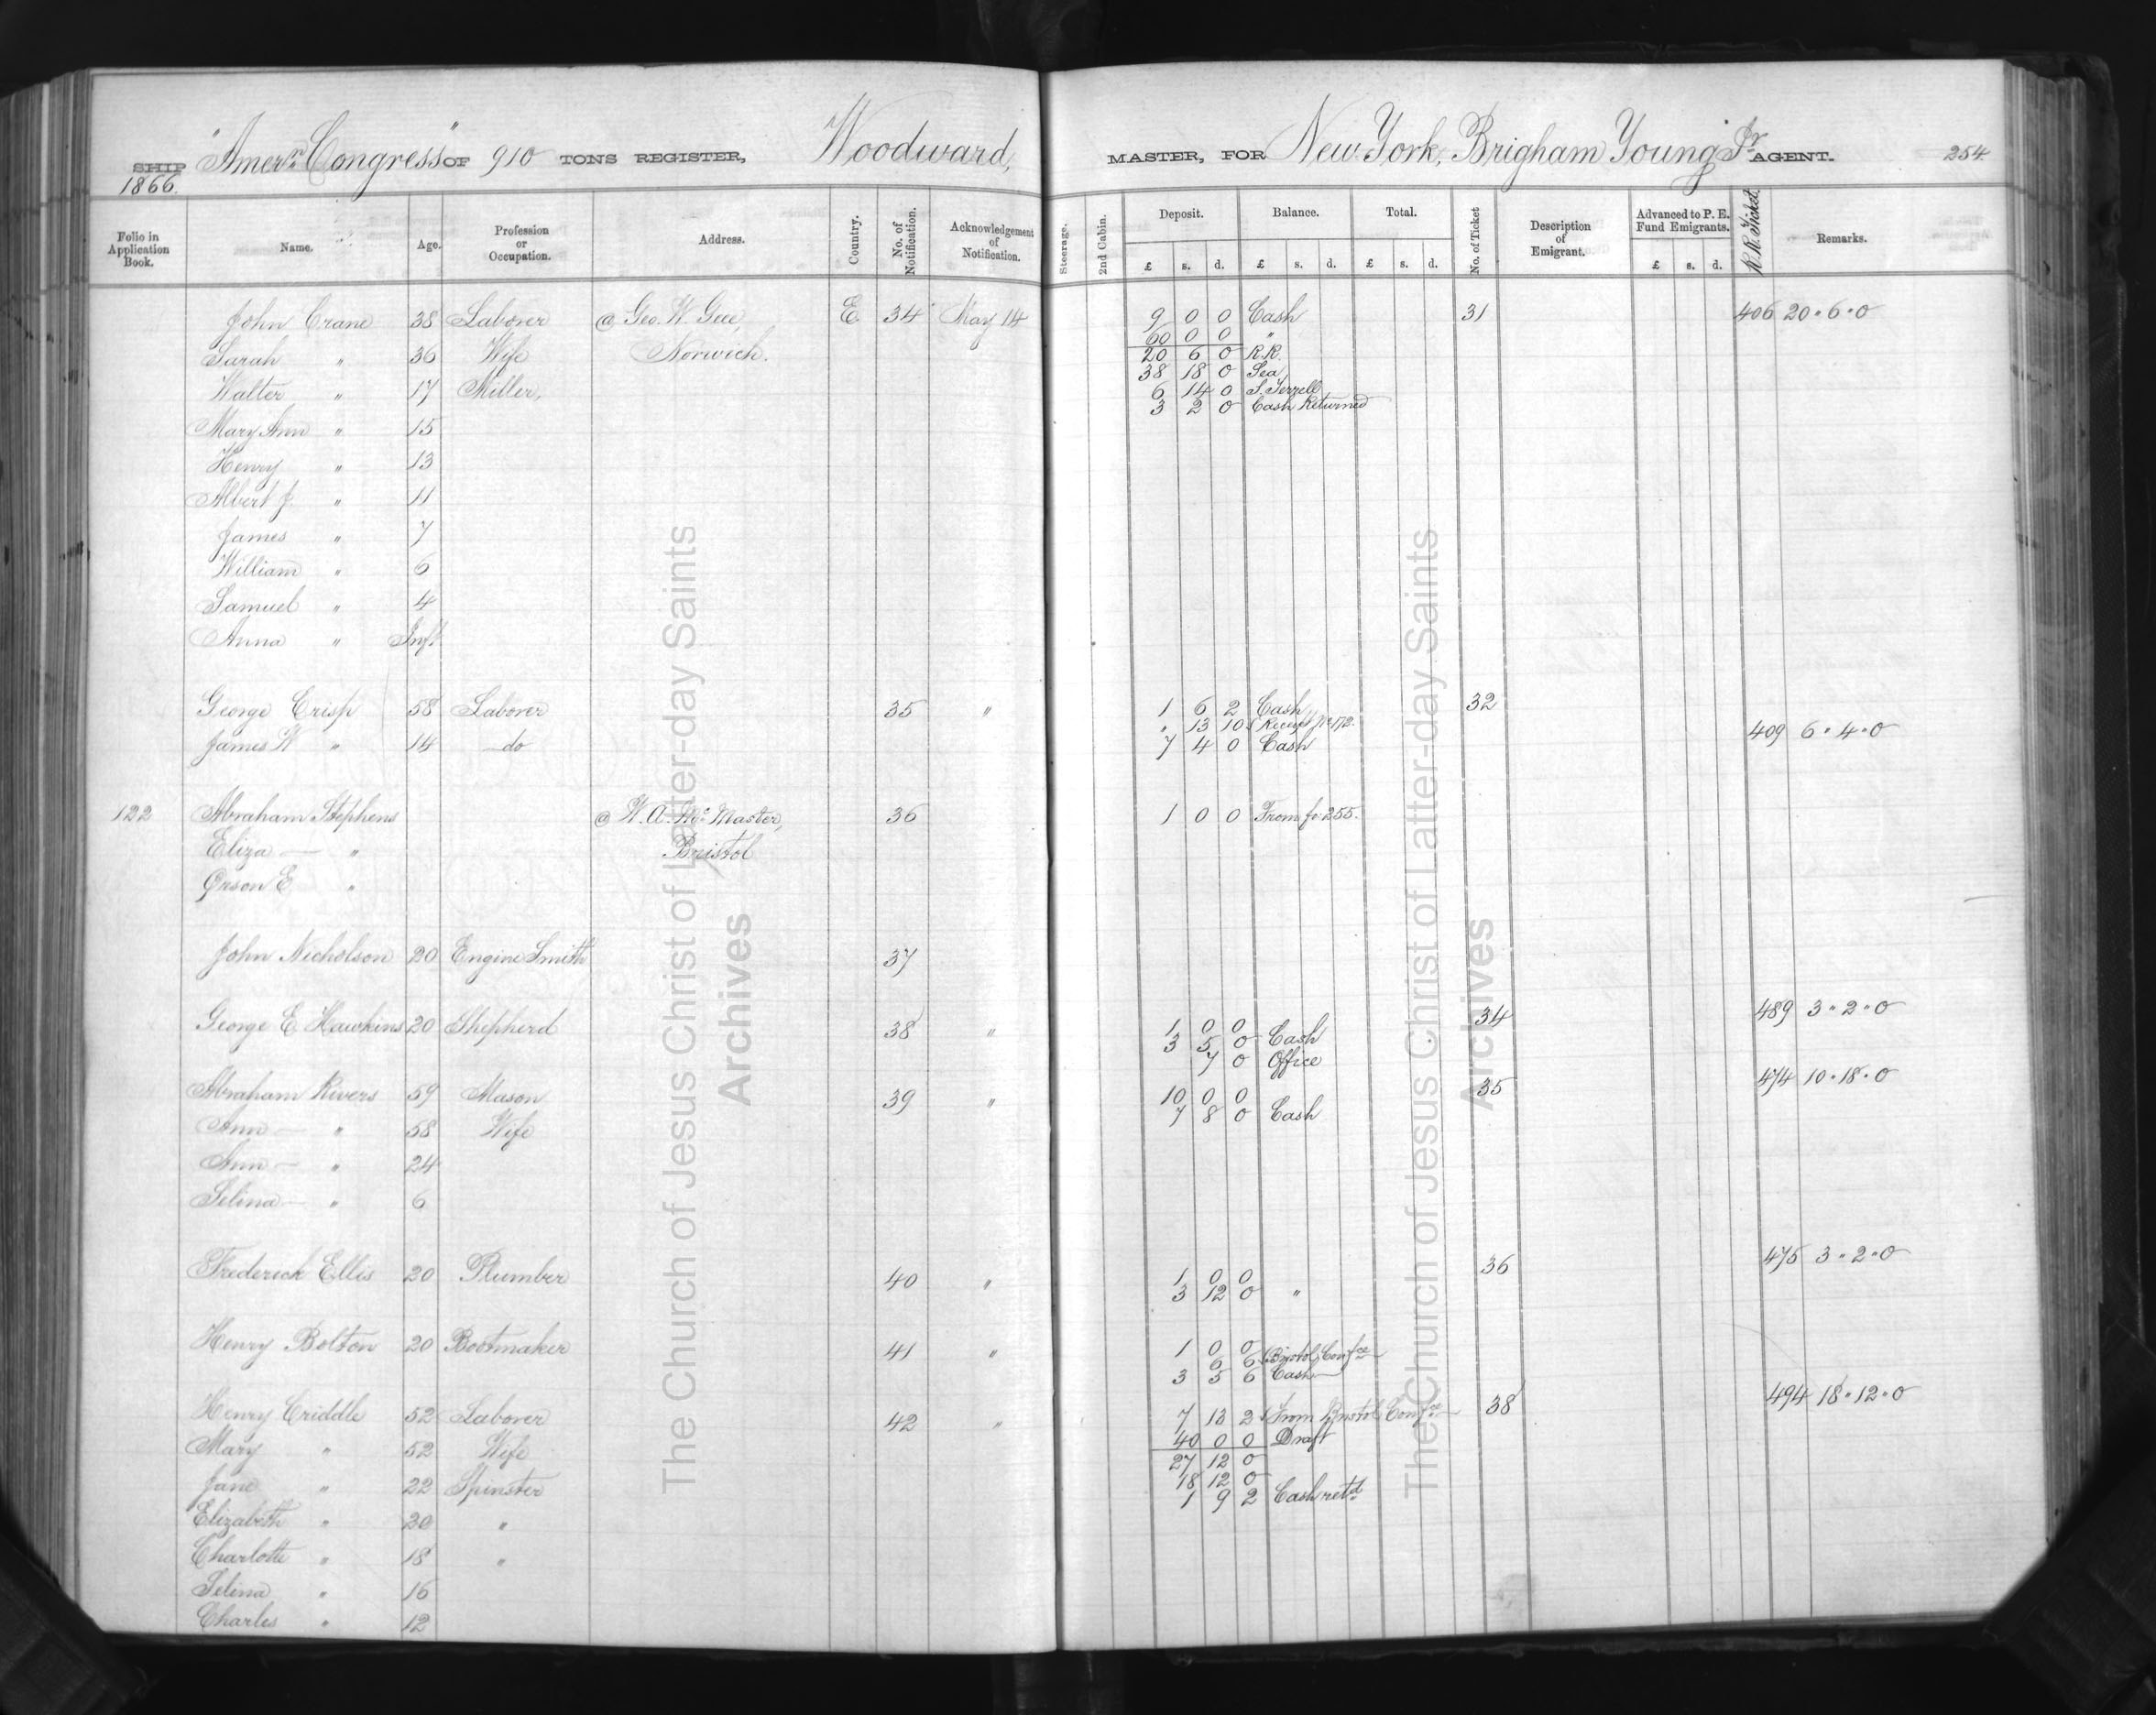 SHIP "Amern. Congress" OF 910 TONS REGISTER, Woodward, MASTER, FOR New York, Brigham Young Jr. AGENT. 254
1866.
Folio in Application Book. Name. Age. Profession or Occupation. Address. Country. No. of Notification. Acknowledgement of Notification. Steerage. 2nd Cabin. Deposit. Balance. Total. No. of Ticket Description of Emigrant. Advanced to P. E. Fund Emigrants. R.R. Ticket. Remarks.
£ s. d. £ s. d. £ s. d. £ s. d.
John Crane 38 Laborer @ Geo. W. Gee, E 34 May 14 9 0 0 Cash 31 406 20 " 6 " 0
60 0 0 "
Sarah " 36 Wife Norwich. 20 6 0 R.R.
38 18 0 Sea
Walter " 17 Miller, 6 14 0 S. Terrell
3 2 0 Cash Returned
Mary Ann " 15
Henry " 13
Albert J. " 11
James " 7
William " 6
Samuel " 4
Anna " Inft.
George Crisp 58 Laborer 35 " 1 6 2 Cash 32
" 13 10 Receipt
James W " 14 do 7 4 0 Cash 409 6 " 4 " 0
122 Abraham Stephens @ W. A. McMaster, 36 1 0 0 From fo. 255.
Eliza — " Bristol
Orson E "
John Nicholson 20 Engine Smith 37
George E. Hawkins 20 Shepherd 38 " 1 0 0 34 489 3 " 2 " 0
3 5 0 Cash
7 0 Office
Abraham Rivers 59 Mason 39 " 10 0 0 35 474 10 " 18 " 0
7 8 0 Cash
Ann — " 58 Wife
Ann — " 24
Selina — " 6
Frederick Ellis 20 Plumber 40 " 1 0 0 36 475 3 " 2 " 0
3 12 0 "
Henry Bolton 20 Bootmaker 41 " 1 0 0
6 6 Bristol Confce
3 5 6 Cash
Henry Criddle 52 Laborer 42 " 7 13 2 From Bristol Confce 38 494 18 " 12 " 0
40 0 0 Draft
Mary " 52 Wife 27 12 0
18 12 0
Jane " 22 Spinster 1 9 2 Cash retd.
Elizabeth " 20 "
Charlotte " 18 "
Selina " 16
Charles " 12
The Church of Jesus Christ of Latter-day Saints
Archives
The Church of Jesus Christ of Latter-day Saints
Archives